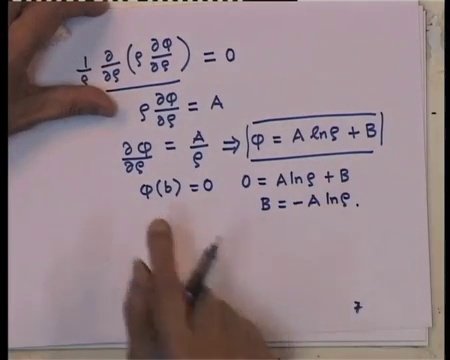 1/ρ ∂/∂ρ (ρ ∂φ/∂ρ) = 0
ρ ∂φ/∂ρ = A
∂φ/∂ρ = A/ρ ⇒ φ = A lnρ + B
φ(b) = 0 0 = A lnρ + B
B = -A lnρ.
7